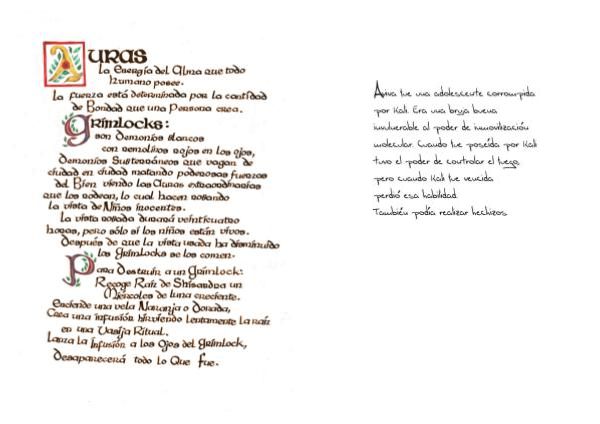 Auras
La Energía del Alma que todo
humano posee.
La fuerza está determinada por la cantidad
de Bondad que una Persona crea.
Grimlocks:
son Demonios blancos
con remolinos rojos en los ojos,
Demonios Subterráneos que vagan de
ciudad en ciudad matando poderosas fuerzas
del Bien viendo las Auras extraordinarias
que los rodean, lo cual hacen robando
la vista de Niños inocentes.
La vista robada durará veinticuatro
horas, pero sólo si los niños están vivos.
Después de que la vista usada ha disminuido
los Grimlocks se los comen.
Para Destruir a un Grimlock:
Recoge Raíz de Shisandra un
Miércoles de luna creciente.
Enciende una vela Naranja o Dorada,
Crea una infusión hirviendo lentamente la raíz
en una Vasija Ritual.
Lanza la Infusión a los Ojos del Grimlock,
desaparecerá todo lo Que fue.
Aviva fue una adolescente corrompida
por Kali. Era una bruja buena
invulnerable al poder de inmovilización
molecular. Cuando fue poseída por Kali
tuvo el poder de controlar el fuego
pero cuando Kali fue vencida
perdió esa habilidad.
También podía realizar hechizos.